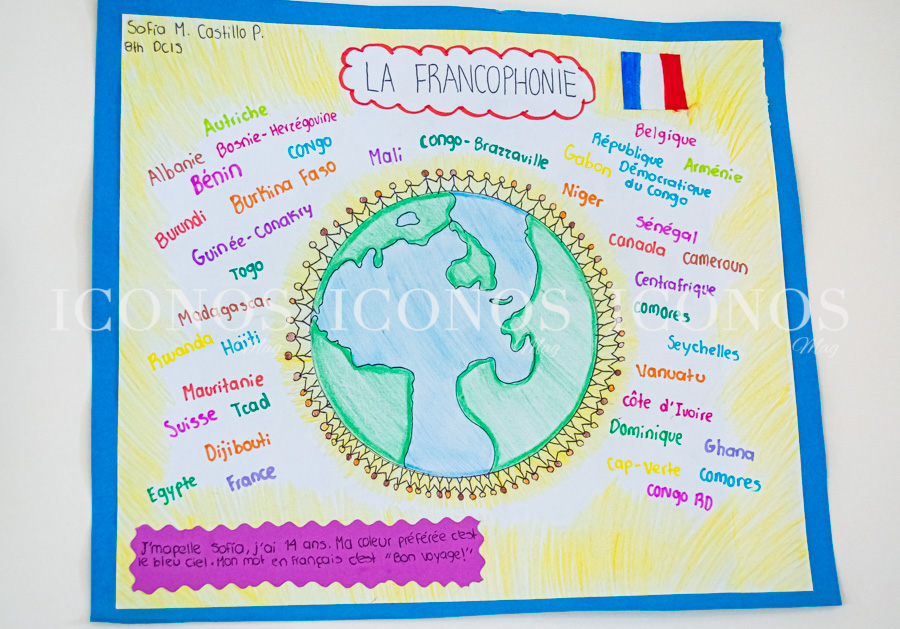 Sofía M. Castillo P.
8th DC15
LA FRANCOPHONIE
Autriche
Albanie
Bosnie-Herzégovine
Bénin
Congo
Burundi
Burkina Faso
Guinée-Conakry
Togo
Madagascar
Rwanda
Haïti
Mauritanie
Suisse
Tcad
Djibouti
Egypte
France
Mali
Congo-Brazzaville
Belgique
République
Démocratique
du Congo
Gabon
Arménie
Niger
Sénégal
Canada
Cameroun
Centrafrique
Comores
Seychelles
Vanuatu
Côte d'Ivoire
Dominique
Ghana
Cap-Verte
Comores
Congo RD
J'mapelle Sofía, j'ai 14 ans. Ma coleur préférée c'est
le bleu ciel. Mon mot en français c'est "Bon voyage!"
ICONOS ICONOS ICONOS
Mag Mag